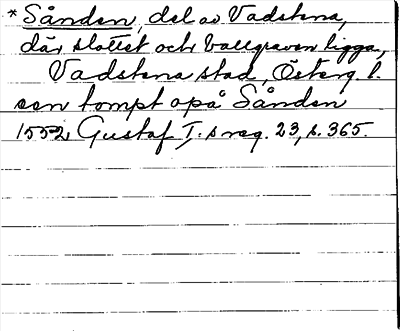 * Sånden, del av Vadstena,
där slottet och vallgraven ligga,
Vadstena stad, Österg. l.
een tompt opå Sånden
1552, Gustaf I:s reg. 23, s. 365.